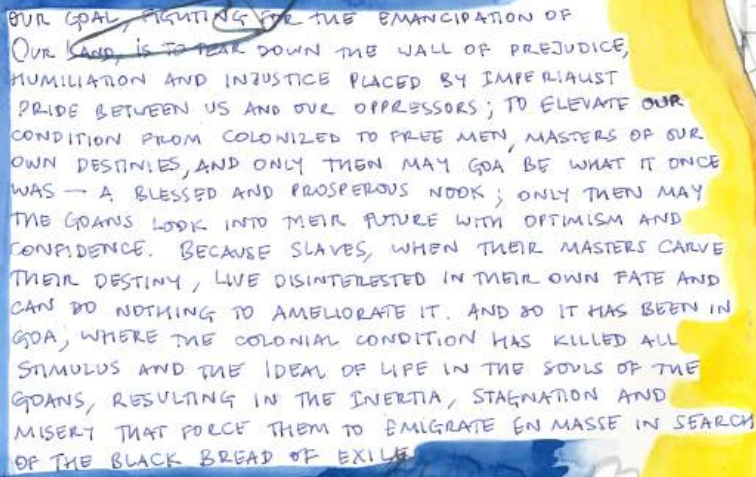 OUR GOAL, FIGHTING FOR THE EMANCIPATION OF
OUR LAND, IS TO TEAR DOWN THE WALL OF PREJUDICE,
HUMILIATION AND INJUSTICE PLACED BY IMPERIALIST
PRIDE BETWEEN US AND OUR OPPRESSORS; TO ELEVATE OUR
CONDITION FROM COLONIZED TO FREE MEN, MASTERS OF OUR
OWN DESTINIES, AND ONLY THEN MAY GOA BE WHAT IT ONCE
WAS — A BLESSED AND PROSPEROUS NOOK; ONLY THEN MAY
THE GOANS LOOK INTO THEIR FUTURE WITH OPTIMISM AND
CONFIDENCE. BECAUSE SLAVES, WHEN THEIR MASTERS CARVE
THEIR DESTINY, LIVE DISINTERESTED IN THEIR OWN FATE AND
CAN DO NOTHING TO AMELIORATE IT. AND SO IT HAS BEEN IN
GOA, WHERE THE COLONIAL CONDITION HAS KILLED ALL
STIMULUS AND THE IDEAL OF LIFE IN THE SOULS OF THE
GOANS, RESULTING IN THE INERTIA, STAGNATION AND
MISERY THAT FORCE THEM TO EMIGRATE EN MASSE IN SEARCH
OF THE BLACK BREAD OF EXILE